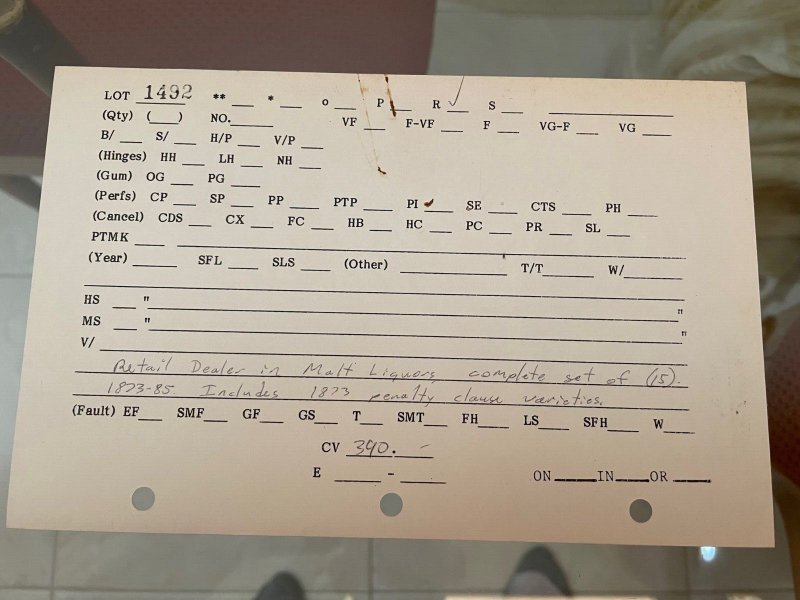 LOT 1492 ** ___ * ___ o ___ P ___ R ✓ S ___ ___
(Qty) (___) NO.___ VF ___ F-VF ___ F ___ VG-F ___ VG ___
B/ ___ S/ ___ H/P ___ V/P ___
(Hinges) HH ___ LH ___ NH ___
(Gum) OG ___ PG ___
(Perfs) CP ___ SP ___ PP ___ PTP ___ PI ___ SE ___ CTS ___ PH ___
(Cancel) CDS ___ CX ___ FC ___ HB ___ HC ___ PC ___ PR ___ SL ___
PTMK ___ ___
(Year) ___ SFL ___ SLS ___ (Other) ___ T/T___ W/___
HS ___ "___"
MS ___ "___"
V/ ___
Retail Dealer in Malt Liquors, complete set of (15).
1873-85. Includes 1873 penalty clause varieties.
(Fault) EF___ SMF___ GF___ GS___ T___ SMT___ FH___ LS___ SFH___ W___
CV 390. -
E ___ - ___ ON ___IN___OR ___